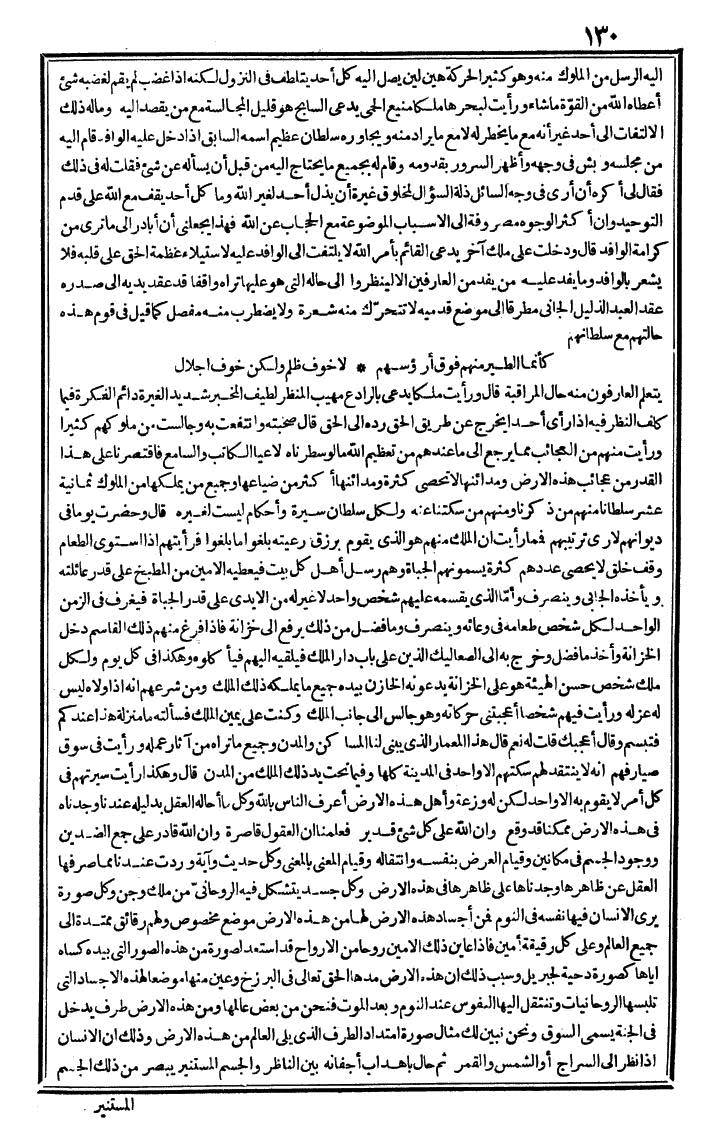 ١٣٠
اليه الرسل من الملوك منه وهو كثير الحركة هين لين يصل اليه كل أحد يتلطف فى النزول لكنه اذا غضب لم يقم لغضبه شئ
أعطاه الله من القوّة ماشاء ورأيت لبحرها ملكا منيع الحمى يدعى السابح هو قليل المجالسة مع من يقصد اليه وماله ذلك
الالتفات الى أحد غير أنه مع ما يخطر له لا مع ما يراد منه ويجاوره سلطان عظيم اسمه السابق اذا دخل عليه الوافد قام اليه
من مجلسه وبش فى وجهه وأظهر السرور بقدومه وقام له بجميع ما يحتاج اليه من قبل أن يسأله عن شئ فقلت له فى ذلك
فقال لى أكره أن أرى فى وجه السائل ذلة السؤال لمخلوق غيرة أن يذل أحد لغير الله وما كل أحد يقف مع الله على قدم
التوحيد وان أكثر الوجوه مصروفة الى الاسباب الموضوعة مع الحجاب عن الله فهذا يجعلنى أن أبادر الى ماترى من
كرامة الوافد قال ودخلت على ملك آخر يدعى القائم بأمر الله لا يلتفت الى الوافد عليه لاستيلاء عظمة الحق على قلبه فلا
يشعر بالوافد وما يفد عليه من يفد من العارفين الا لينظروا الى حاله التى هو عليها تراه واقفا قد عقد يديه الى صدره
عقد العبد الذليل الجانى مطرقا الى موضع قدميه لا تتحرّك منه شعرة ولا يضطرب منه مفصل كما قيل فى قوم هذه
حالتهم مع سلطانهم
كأنما الطير منهم فوق أرؤسهم * لا خوف ظلم ولكن خوف اجلال
يتعلم العارفون منه حال المراقبة قال ورأيت ملكا يدعى بالرادع مهيب المنظر لطيف المخبر شديد الغيرة دائم الفكرة فيما
كلف النظر فيه اذا رأى أحدا يخرج عن طريق الحق رده الى الحق قال صحبته وانتفعت به وجالست من ملوكهم كثيرا
ورأيت منهم من العجائب مما يرجع الى ما عندهم من تعظيم الله ما لو سطرناه لأعيا الكاتب والسامع فاقتصرنا على هذا
القدر من عجائب هذه الارض ومدائنها لا تحصى كثرة ومدائنها أكثر من ضياعها وجميع من يملكها من الملوك ثمانية
عشر سلطانا منهم من ذكرنا ومنهم من سكتنا عنه ولكل سلطان سيرة وأحكام ليست لغيره قال وحضرت يوما فى
ديوانهم لارى ترتيبهم فما رأيت ان الملك منهم هو الذى يقوم برزق رعيته بلغوا ما بلغوا فرأيتهم اذا استوى الطعام
وقف خلق لا يحصى عددهم كثرة يسمونهم الجباة وهم رسل أهل كل بيت فيعطيه الامين من المطبخ على قدر عائلته
ويأخذه الجابى وينصرف وأمّا الذى يقسمه عليهم شخص واحد لا غير له من الايدى على قدر الجباة فيغرف فى الزمن
الواحد لكل شخص طعامه فى وعائه وينصرف وما فضل من ذلك يرفع الى خزانة فاذا فرغ منهم ذلك القاسم دخل
الخزانة وأخذ ما فضل وخرج به الى الصعاليك الذين على باب دار الملك فيلقيه اليهم فيأكلوه وهكذا فى كل يوم ولكل
ملك شخص حسن الهيئة هو على الخزانة يدعونه الخازن بيده جميع ما يملكه ذلك الملك ومن شرعهم انه اذا ولاه ليس
له عزله ورأيت فيهم شخصا أعجبتنى حركاته وهو جالس الى جانب الملك وكنت على يمين الملك فسألته ما منزلة هذا عندكم
فتبسم وقال أعجبك قلت له نعم قال هذا المعمار الذى يبنى لنا المساكن والمدن وجميع ماتراه من آثار عمله ورأيت فى سوق
صيارفهم انه لا ينتقد لهم سكتهم الا واحد فى المدينة كلها وفيما تحت يد ذلك الملك من المدن قال وهكذا رأيت سيرتهم فى
كل أمر لا يقوم به الا واحد لكن له وزعة وأهل هذه الارض أعرف الناس بالله وكل ما أحاله العقل بدليله عندنا وجدناه
فى هذه الارض ممكنا قد وقع وان الله على كل شئ قدير فعلمنا ان العقول قاصرة وان الله قادر على جمع الضدين
ووجود الجسم فى مكانين وقيام العرض بنفسه وانتقاله وقيام المعنى بالمعنى وكل حديث وآية وردت عندنا مما صرفها
العقل عن ظاهرها وجدناها على ظاهرها فى هذه الارض وكل جسد يتشكل فيه الروحانىّ من ملك وجن وكل صورة
يرى الانسان فيها نفسه فى النوم فمن أجساد هذه الارض لها من هذه الارض موضع مخصوص ولهم رقائق ممتدة الى
جميع العالم وعلى كل رقيقة أمين فاذا عاين ذلك الامين روحا من الارواح قد استعد لصورة من هذه الصور التى بيده كساه
اياها كصورة دحية لجبريل وسبب ذلك ان هذه الارض مدها الحق تعالى فى البرزخ وعين منها موضعا لهذه الاجساد التى
تلبسها الروحانيات وتنتقل اليها النفوس عند النوم وبعد الموت فنحن من بعض عالمها ومن هذه الارض طرف يدخل
فى الجنة يسمى السوق ونحن نبين لك مثال صورة امتداد الطرف الذى يلى العالم من هذه الارض وذلك ان الانسان
اذا نظر الى السراج أو الشمس والقمر ثم حال باهداب أجفانه بين الناظر والجسم المستنير يبصر من ذلك الجسم
المستنير